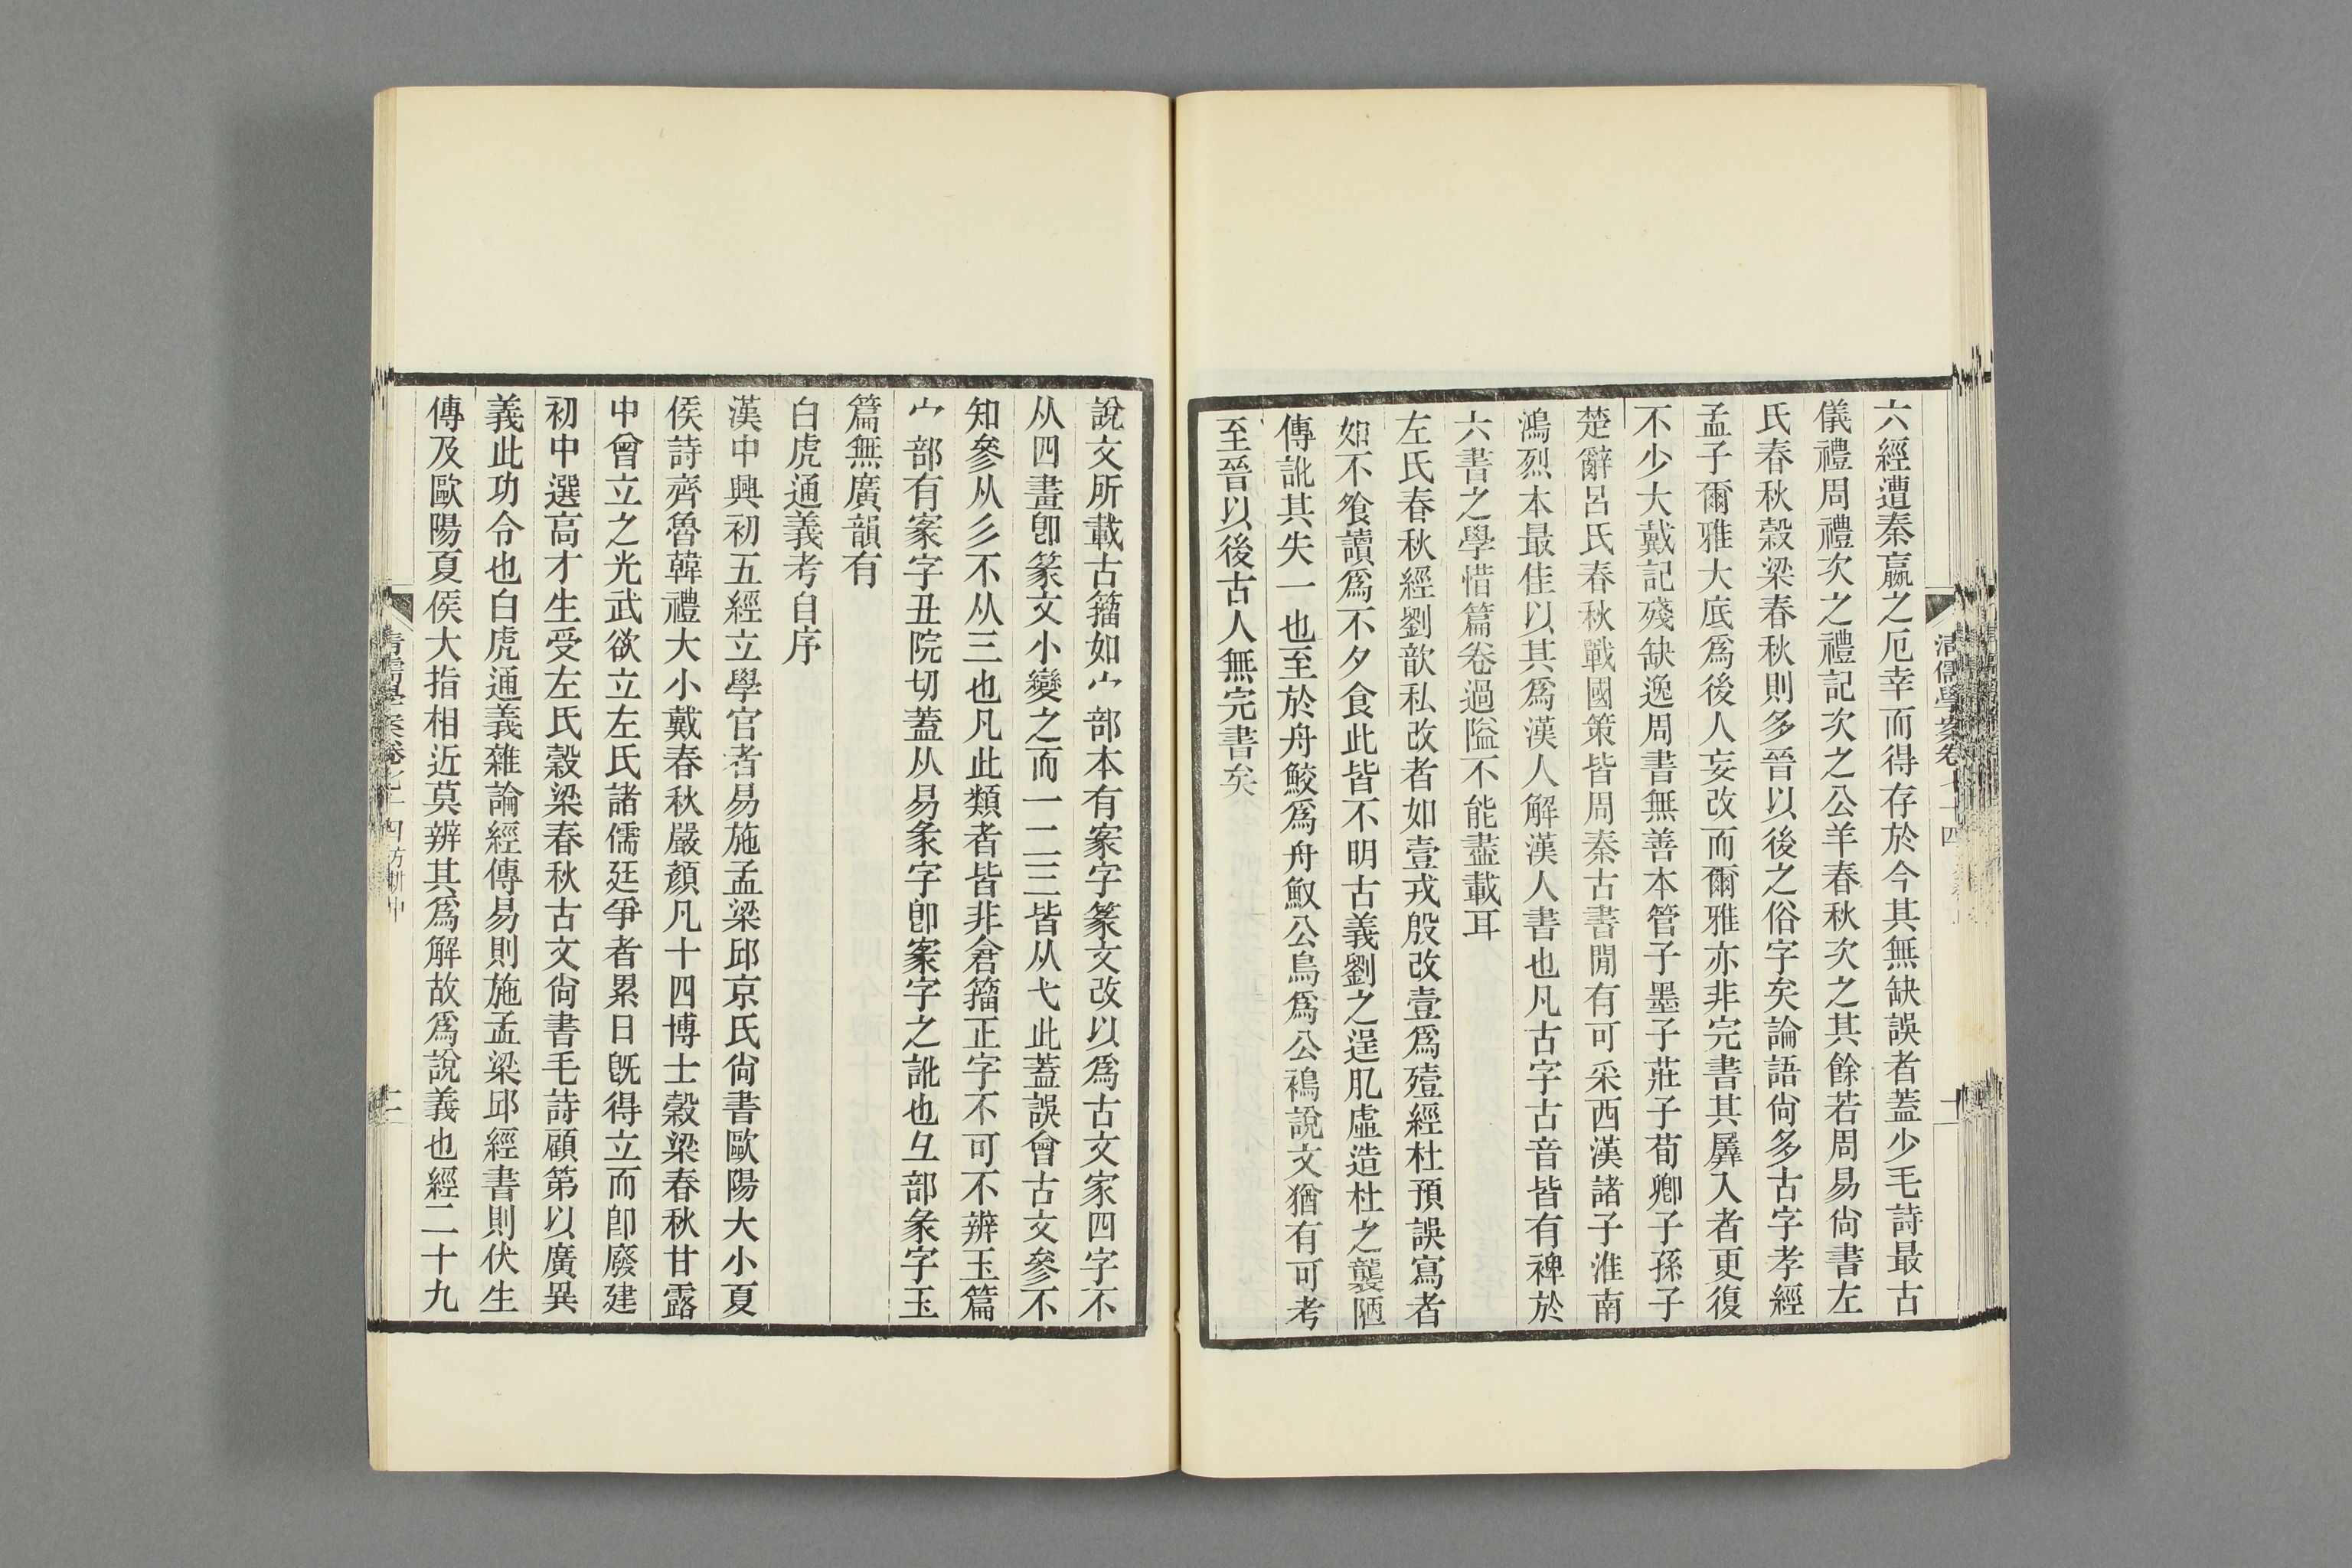 六經遭秦嬴之厄幸而得存於今其無缺誤者蓋少毛詩最古
儀禮周禮次之禮記次之公羊春秋次之其餘若周易尙書左
氏春秋穀梁春秋則多晉以後之俗字矣論語尙多古字孝經
孟子爾雅大底爲後人妄改而爾雅亦非完書其羼入者更復
不少大戴記殘缺逸周書無善本管子墨子莊子荀卿子孫子
楚辭呂氏春秋戰國策皆周秦古書閒有可采西漢諸子淮南
鴻烈本最佳以其爲漢人解漢人書也凡古字古音皆有裨於
六書之學惜篇卷過隘不能盡載耳
左氏春秋經劉歆私改者如壹戎殷改壹爲殪經杜預誤寫者
如不飧讀爲不夕食此皆不明古義劉之逞肊虛造杜之襲陋
傳訛其失一也至於舟鮫爲舟䱷公鳥爲公鵶說文猶有可考
至晉以後古人無完書矣
清儒學案卷七十四
十
說文所載古籀如宀部本有家字篆文改以爲古文家四字不
从四畫卽篆文小變之而一二三皆从弋此蓋誤會古文參不
知參从彡不从三也凡此類者皆非倉籀正字不可不辨玉篇
宀部有𡩀字丑院切蓋从易彖字卽𡩀字之訛也彑部彖字玉
篇無廣韻有
白虎通義考自序
漢中興初五經立學官者易施孟梁邱京氏尙書歐陽大小夏
侯詩齊魯韓禮大小戴春秋嚴顏凡十四博士穀梁春秋甘露
中曾立之光武欲立左氏諸儒廷爭者累日旣得立而卽廢建
初中選高才生受左氏穀梁春秋古文尙書毛詩顧第以廣異
義此功令也白虎通義雜論經傳易則施孟梁邱經書則伏生
傳及歐陽夏侯大指相近莫辨其爲解故爲說義也經二十九
清儒學案卷七十四 方耕中
十一